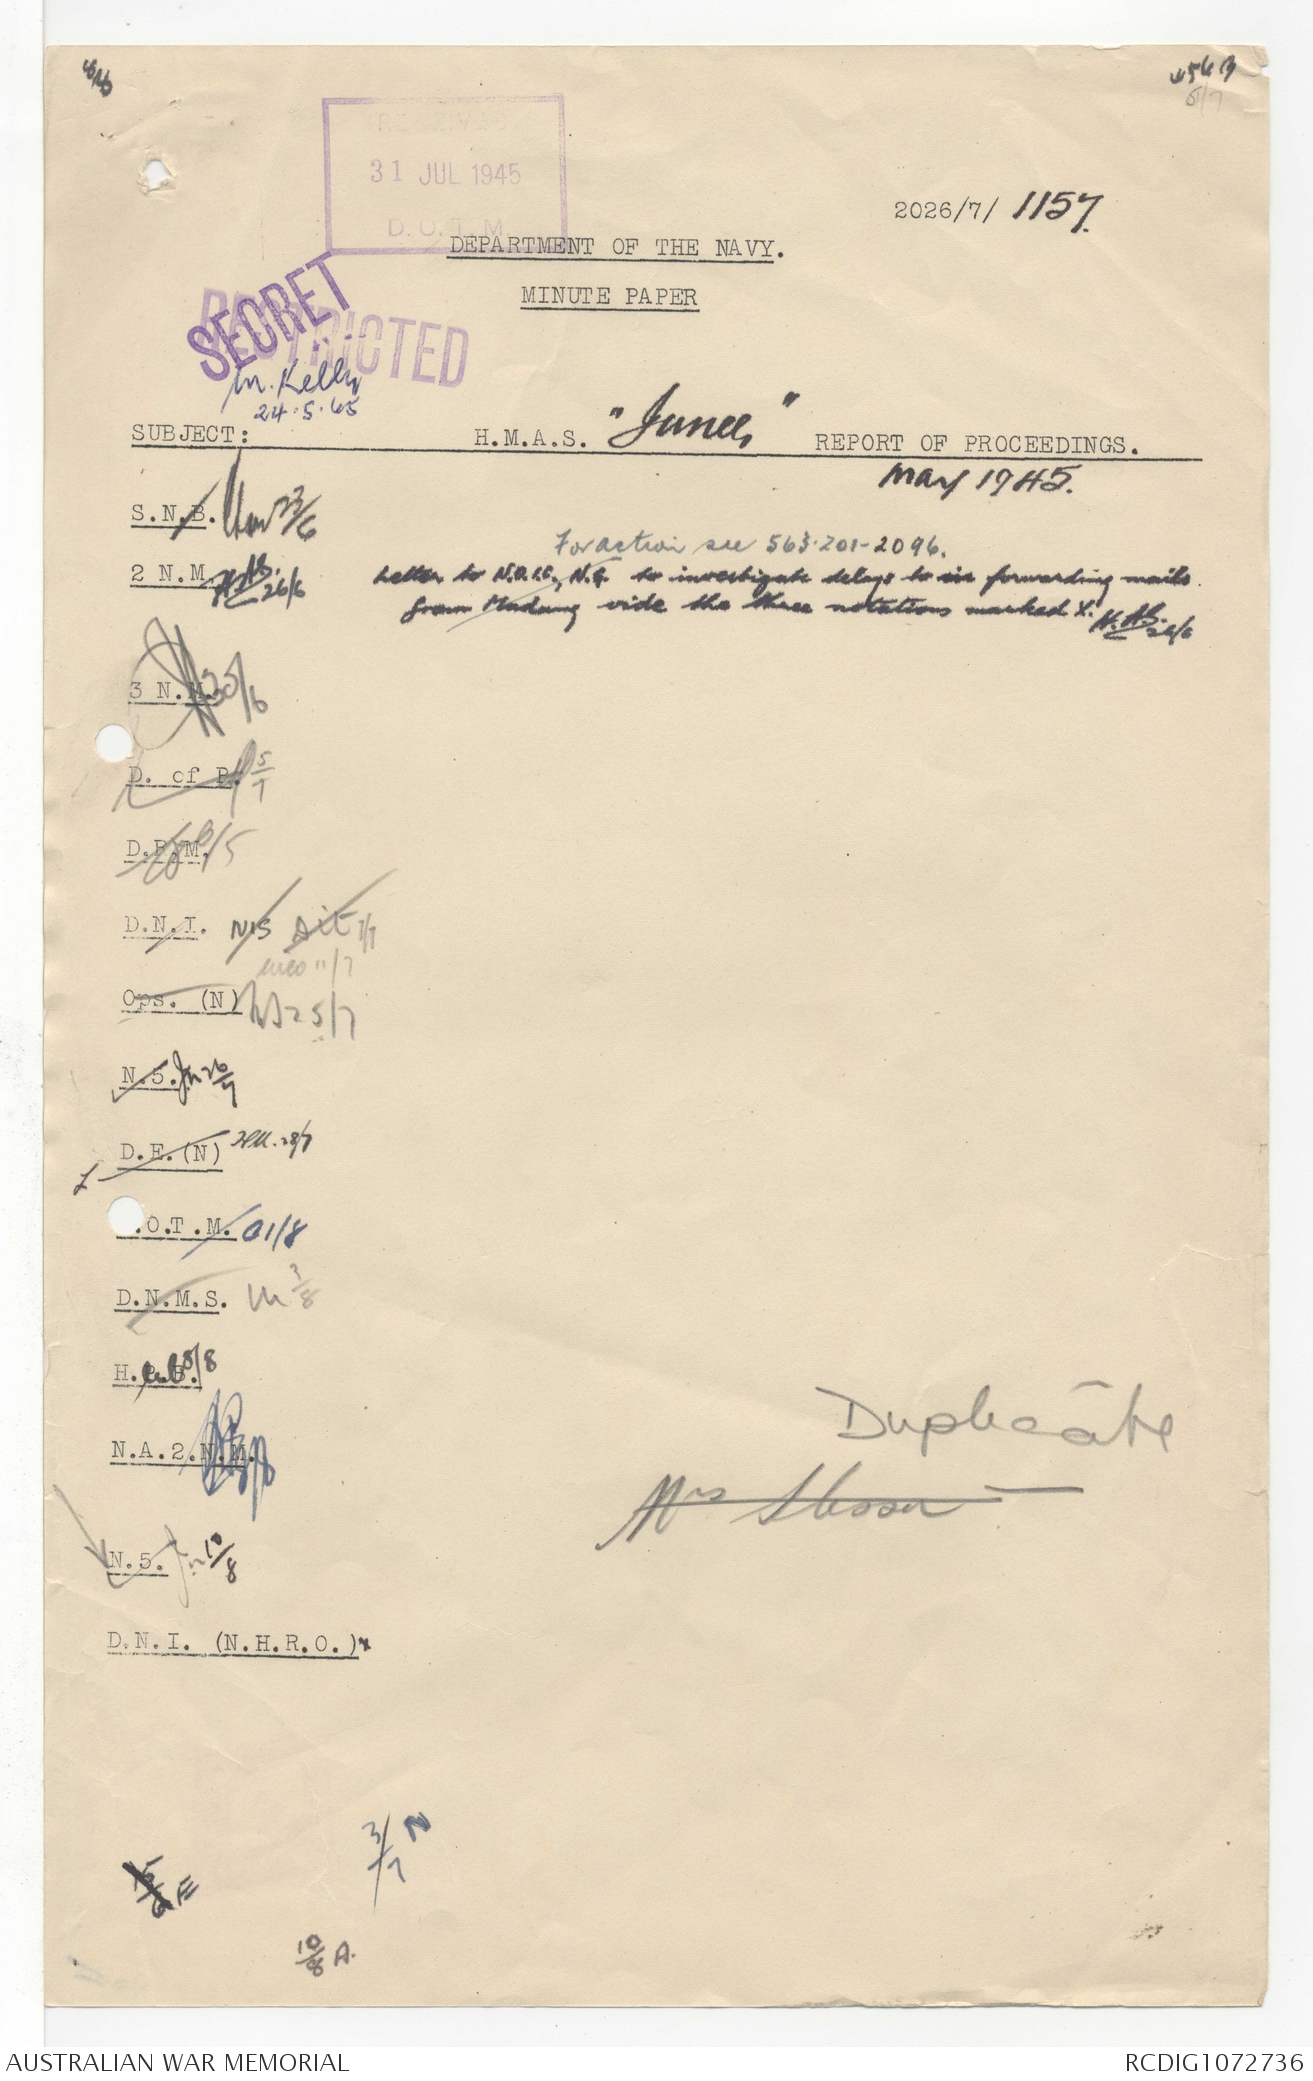 456B
5/7
RECEIVED
31 JUL 1945
D.O.T.M.
2026/7/ 1157.
DEPARTMENT OF THE NAVY.
MINUTE PAPER
RESTRICTED
SECRET
M. Kelly
24.5.65
SUBJECT: H.M.A.S. "Junee" REPORT OF PROCEEDINGS.
May 1945.
S.N.B. 23/6
For action see 563.201-2096.
2 N.M. 26/6 Letter to N.O.I.C., N.G. to investigate delays to in forwarding mails
from Madang vide the three notations marked X. 26/6
3 N.M. 25/6
D. of P. 5/7
D.P.M. 6/5
D.N.I. NIS Ait 7/7
11/7
Ops. (N) 25/7
N.5. 26/7
D.E.(N) 28/7
.O.T.M. 01/8
D.N.M.S. 3/8
H. .B. 8/8
N.A.2.N.M.
Duplicate
Mrs
N.5. 10/8
D.N.I. (N.H.R.O.)
3/7 N
E
10/8 A.
AUSTRALIAN WAR MEMORIAL
RCDIG1072736